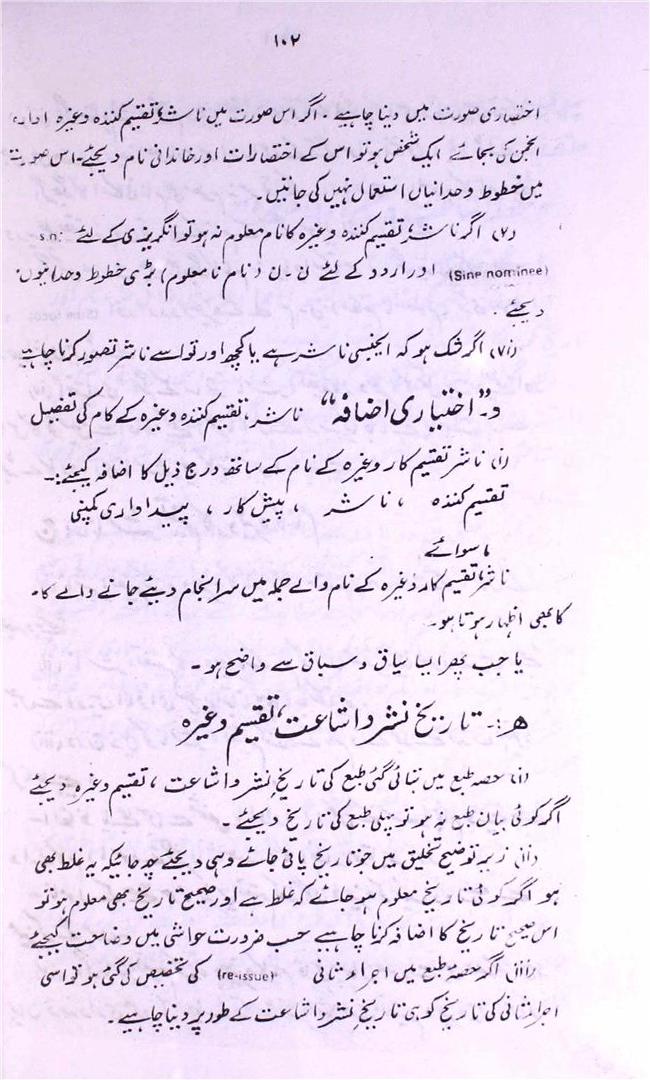 ۱۰۲
اختصاری صورت میں دینا چاہیے ۔ اگر اس صورت میں ناشر، تقیم کنندہ وغیرہ ادارہ
انجمن کی بجائے ایک شخص ہو تو اس کے اختصارات اور خاندانی نام دیجئے۔ اس صورت
میں خطوط وحدانیاں استعمال نہیں کی جائیں۔
(v) اگر ناشر، تقسیم کنندہ وغیرہ کا نام معلوم نہ ہو تو انگریزی کے لئے s.n.
(Sine nominee) اور اردو کے لئے ن۔ن (نام نامعلوم) بڑی خطوط وحدانیوں
دیجئے ۔
(vi) اگر شک ہو کہ ایجنسی ناشر ہے یا کچھ اور تو اسے ناشر تصور کرنا چاہیے
و۔ "اختیاری اضافہ" ناشر، تقسیم کنندہ وغیرہ کے کام کی تفصیل
(i) ناشر تقسیم کار وغیرہ کے نام کے ساتھ درج ذیل کا اضافہ کیجئے:۔
تقسیم کنندہ ، ناشر ، پیش کار ، پیداواری کمپنی
ماسوائے
ناشر، تقسیم کار وغیرہ کے نام والے جملہ میں سرانجام دیئے جانے والے کام
کا بھی اظہار ہوتا ہو۔
یا جب پھر ایسا سیاق و سباق سے واضح ہو ۔
ھ :۔ تاریخ نشر و اشاعت، تقسیم وغیرہ
(i) حصہ طبع میں بتائی گئی طبع کی تاریخ نشر و اشاعت ، تقسیم وغیرہ دیجئے
اگر کوئی بیان طبع نہ ہو تو پہلی طبع کی تاریخ دیجئے ۔
(ii) زیر توضیح تخلیق میں جو تاریخ پائی جائے وہی دیجئے چہ جائیکہ یہ غلط بھی
ہو اگر کوئی تاریخ معلوم ہو جائے کہ غلط ہے اور صحیح تاریخ بھی معلوم ہو تو
اس صحیح تاریخ کا اضافہ کرنا چاہیے حسب ضرورت حواشی میں وضاحت کیجئے
(iii) اگر حصہ طبع میں اجرا ثانی (re-issue) کی تخصیص کی گئی ہو تو اسی
اجرا ثانی کی تاریخ کو ہی تاریخ نشر و اشاعت کے طور پر دینا چاہیے ۔